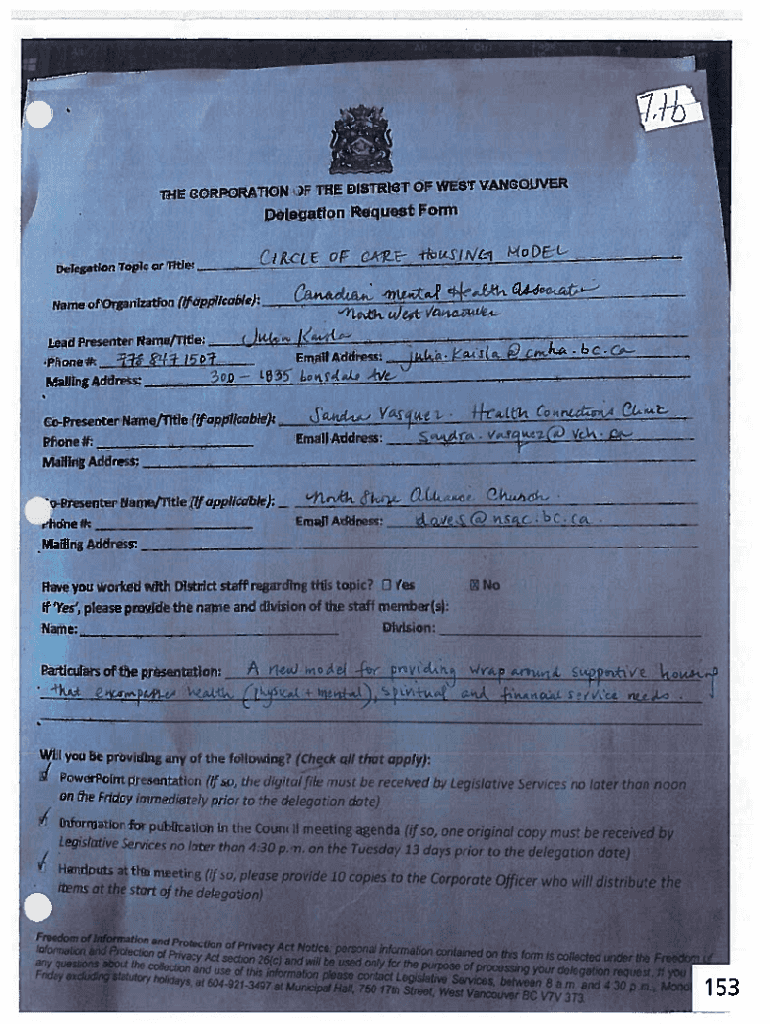 7.1b
THE CORPORATION OF THE DISTRICT OF WEST VANCOUVER
Delegation Request Form
Delegation Topic or Title: CIRCLE OF CARE HOUSING MODEL
Name of Organization (if applicable): Canadian Mental Health Association
North West Vancouver
Lead Presenter Name/Title: Julia Kaisla
Phone #: 778 847 1507 Email Address: julia.kaisla@cmha.bc.ca
Mailing Address: 300 - 1835 Lonsdale Ave
Co-Presenter Name/Title (if applicable): Sandra Vasquez. Health Connections Clinic
Phone #: Email Address: sandra.vasquez@vch.ca
Mailing Address:
o-Presenter Name/Title (if applicable): North Shore Alliance Church.
Phone #: Email Address: daves@nsac.bc.ca.
Mailing Address:
Have you worked with District staff regarding this topic? ☐ Yes ☒ No
If 'Yes', please provide the name and division of the staff member(s):
Name: Division:
Particulars of the presentation: A new model for providing wrap around supportive housing
that encompasses health (physical + mental), spiritual and financial service needs.
Will you be providing any of the following? (Check all that apply):
☑ PowerPoint presentation (if so, the digital file must be received by Legislative Services no later than noon
on the Friday immediately prior to the delegation date)
☑ Information for publication in the Council meeting agenda (if so, one original copy must be received by
Legislative Services no later than 4:30 p.m. on the Tuesday 13 days prior to the delegation date)
☑ Handouts at the meeting (if so, please provide 10 copies to the Corporate Officer who will distribute the
items at the start of the delegation)
Freedom of Information and Protection of Privacy Act Notice: personal information contained on this form is collected under the Freedom of
Information and Protection of Privacy Act section 26(c) and will be used only for the purpose of processing your delegation request. If you
any questions about the collection and use of this information please contact Legislative Services, between 8 a.m. and 4:30 p.m., Mond
Friday excluding statutory holidays, at 604-921-3497 at Municipal Hall, 750 17th Street, West Vancouver BC V7V 3T3.
153